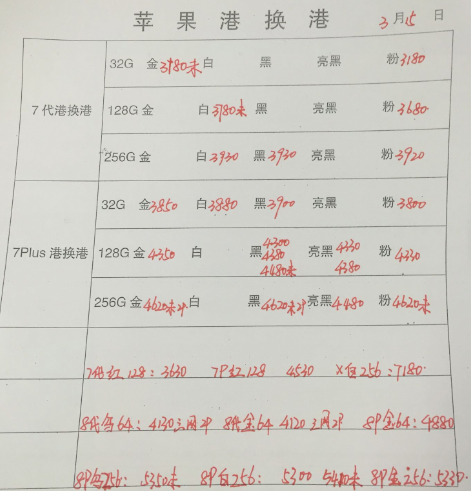 苹果港换港 3月15日
7代港换港
32G 金3180未 白 黑 亮黑 粉3180
128G 金 白3780未 黑 亮黑 粉3680
256G 金 白3930 黑3930 亮黑 粉3920
7Plus 港换港
32G 金3850 白3880 黑3900 亮黑 粉3800
128G 金4350 白 黑4300 4380 4480未 亮黑4330 4380 粉4330
256G 金4620未 白 黑4620未 亮黑4480 粉4620未
红128：3630 7P红128 4530 X白256：7180
64：4130三网 金64 4120三网 8P金64：4880
8P 256：5350未 8P白256：5300 5400未 8P金256：5330